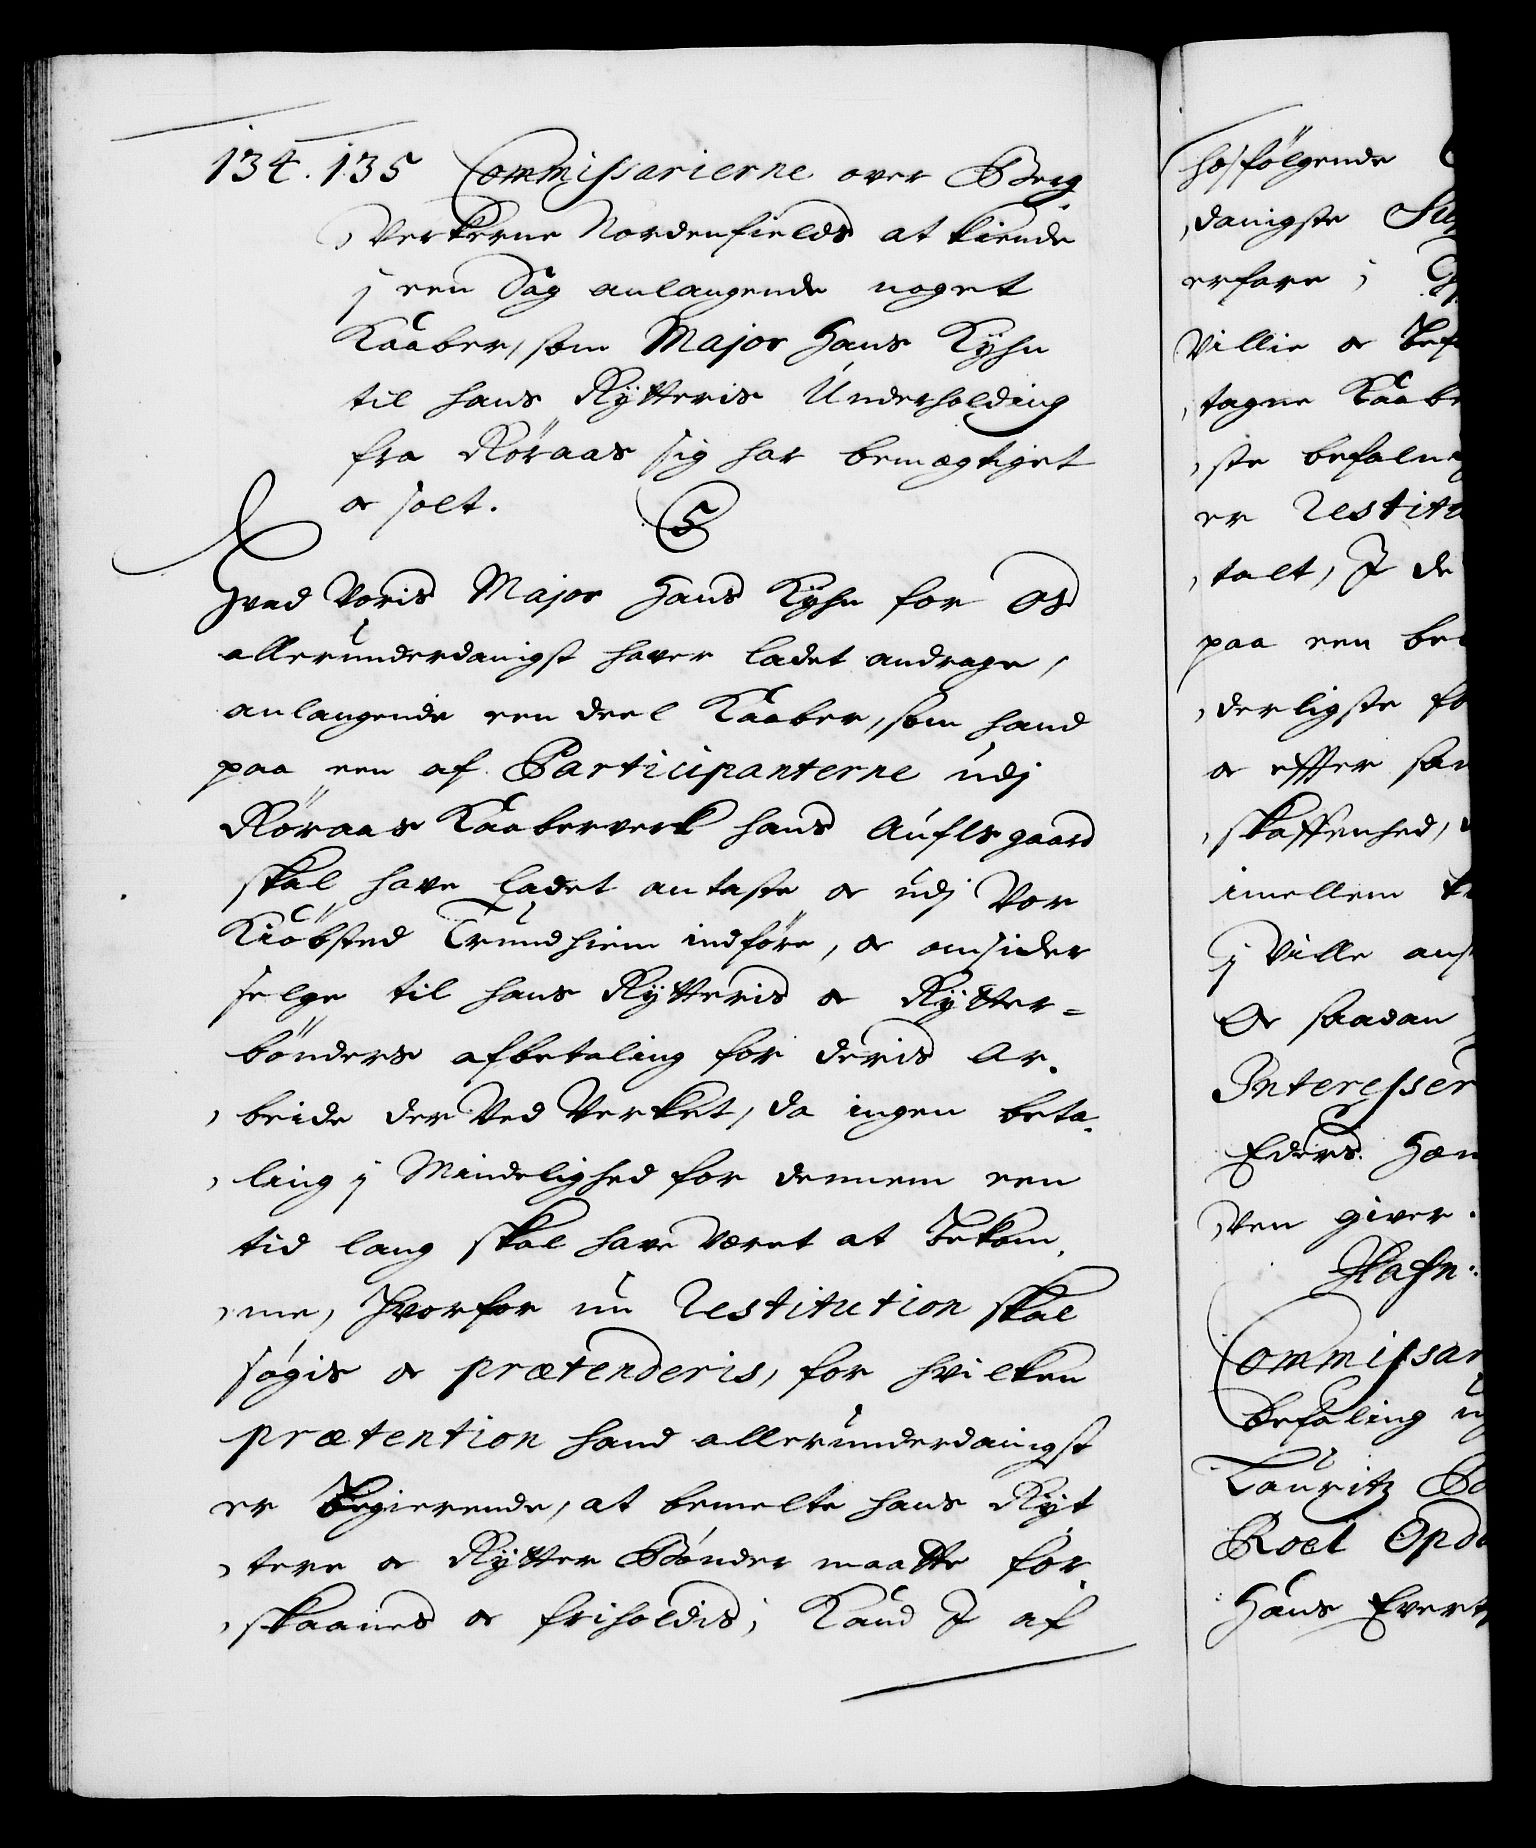 134. 135 Commissarierne over Berg
verkerne Nordenfields at kiende
j een Sag anlangende noget
Kaaber, som Major Hans Kÿhn
til hans Rÿtteris Underholding
fra Röraas sig har bemægtiget
oc solt.
5
Hvad Voris Major Hans Kÿhn for Os
allerunderdanigst haver ladet andrage,
anlangende een deel Kaaber, som hand
paa een af Participanterne udj
Röraas Kaaberverk hans gaard
skal have ladet antaste oc udj Vor
Kiöbsted Trundhiem indföre, oc omsider
selge til hans Rÿtteris oc Rÿtter-
bönders afbetaling for deris Ar-
beide der Ved Verket, da ingen beta-
ling j Mindelighed for dennem een
tid lang skal have Været at bekom-
me, Hvorfor nu Restitution skal
søgis oc prætenderis, for hvilken
prætention hand allerunderdanigst
er begierende, at bemelte hans Rÿt
tere oc Rÿtter Bönder maatte for-
skaanes oc friholdis; Kand I af
hosfölgende
danigste
erfare;
Villie oc
tagne
ste
er
talt, I de
paa een
derligste
oc effter
skaffenhed,
imellem
j Ville
Oc saadan
Eders
ven giver.
Hafn:
befaling
Lauritz
Roel
Hans